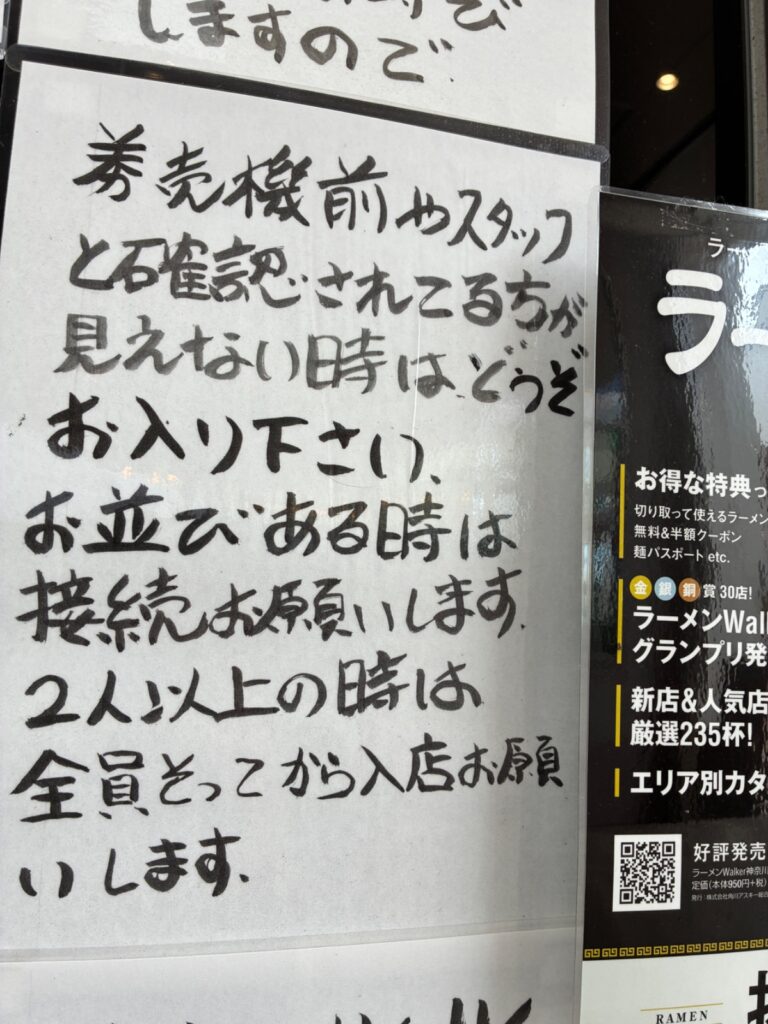 しますので
券売機前やスタッフ
と確認されてる方が
見えない時はどうぞ
お入り下さい、
お並びある時は
接続お願いします.
2人以上の時は
全員そってから入店お願
いします.
ラー
お得な特典っ
切り取って使えるラーメン
無料&半額クーポン
麺パスポート etc.
金銀銅賞 30店!
ラーメンWal
グランプリ発
新店&人気店
厳選235杯!
エリア別カタ
好評発売
ラーメンWalker神奈川
定価(本体950円+税)
RAMEN